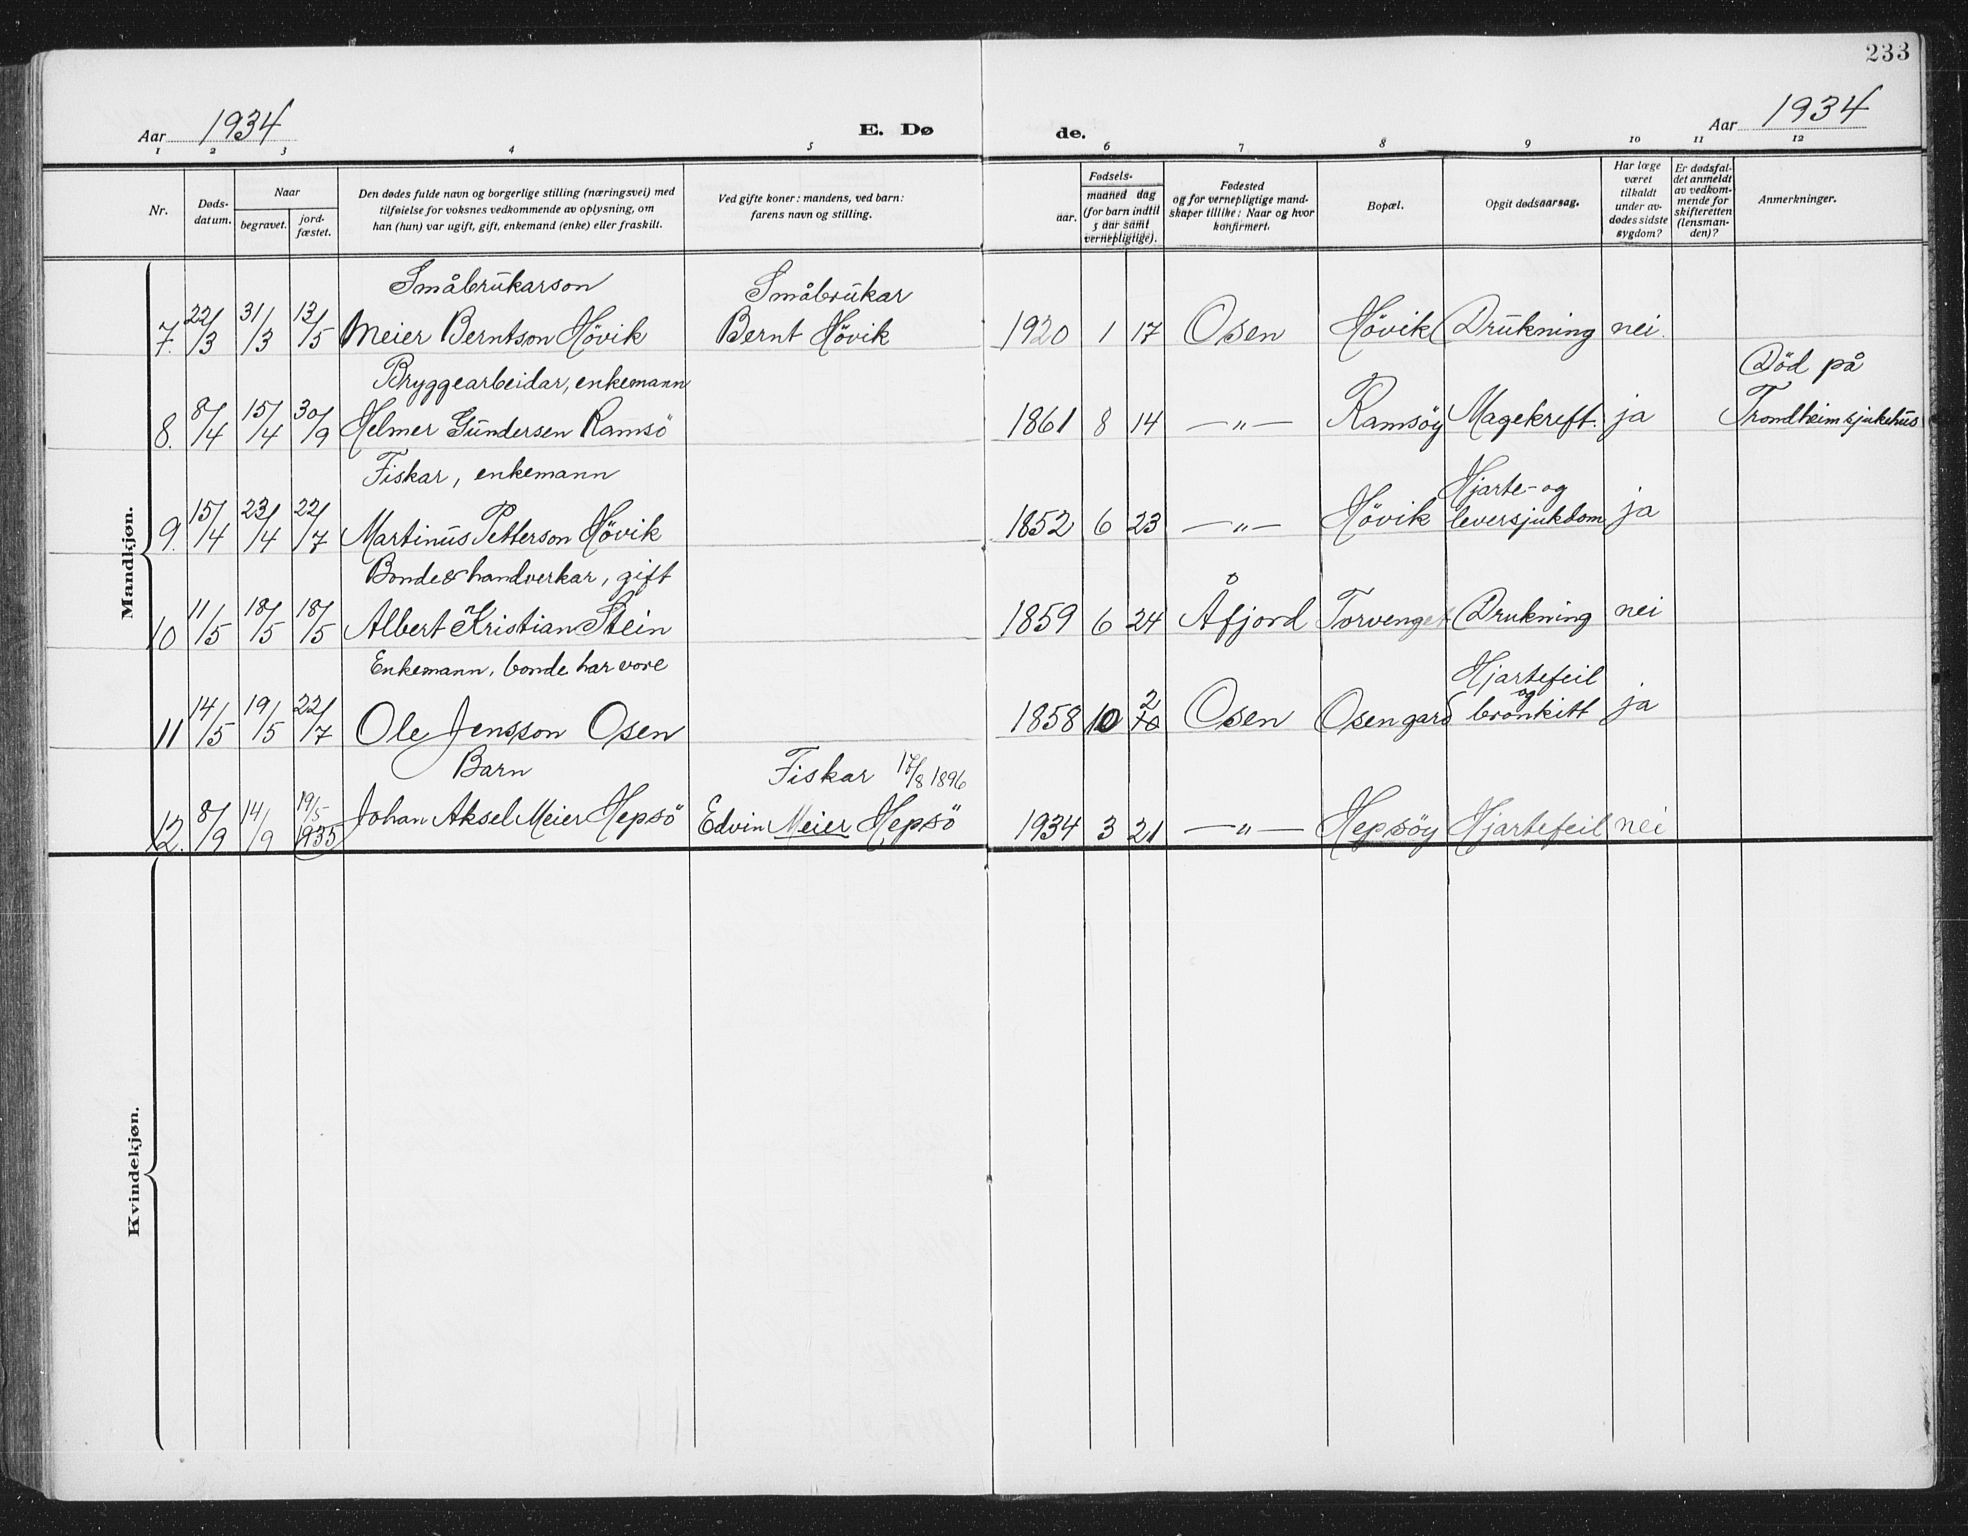 233
Aar 1934
E. Dø
de.
Aar 1934
1 2 3 4 5 6 7 8 9 10 11 12
Nr.
Døds-
datum.
Naar
begravet.
jord-
fæstet.
Den dødes fulde navn og borgerlige stilling (næringsvei) med
tilføielse for voksnes vedkommende av oplysning, om
han (hun) var ugift, gift, enkemand (enke) eller fraskilt.
Ved gifte koner: mandens, ved barn:
farens navn og stilling.
Fødsels-
aar.
maaned dag
(for barn indtil
5 aar samt
vernepligtige).
Fødested
og for vernepligtige mand-
skaper tillike: Naar og hvor
konfirmert.
Bopæl.
Opgit dødsaarsag.
Har læge
været
tilkaldt
under av-
dødes sidste
sygdom?
Er dødsfal-
det anmeldt
av vedkom-
mende for
skifteretten
(lensman-
den)?
Anmerkninger.
Mandkjøn.
Småbrukarson Småbrukar
7. 22/3 31/3 13/5 Meier Berntson Hövik Bernt Hövik 1920 1 17 Osen Hövik Drukning nei.
Bryggearbeidar, enkemann Död på
8. 8/4 15/4 30/9 Helmer Gundersen Ramsö 1861 8 14 —"— Ramsöy Magekreft. ja Trondheim sjukehus
Fiskar, enkemann Hjarte- og
9. 15/4 23/4 22/7 Martinus Petterson Hövik 1852 6 23 —"— Hövik leversjukdom ja
Bonde & handverkar, gift
10 11/5 18/5 18/5 Albert Kristian Stein 1859 6 24 Åfjord Torvenget Drukning nei
Enkemann, bonde har vore Hjartefeil
og
11 14/5 19/5 22/7 Ole Jensson Osen 1858 10 2 Osen Osengard bronkitt ja
Barn Fiskar 17/8 1896
12. 8/9 14/9 19/5 1935 Johan Aksel Meier Hepsö Edvin Meier Hepsö 1934 3 21 —"— Hepsöy Hjartefeil nei
Kvindekjøn.